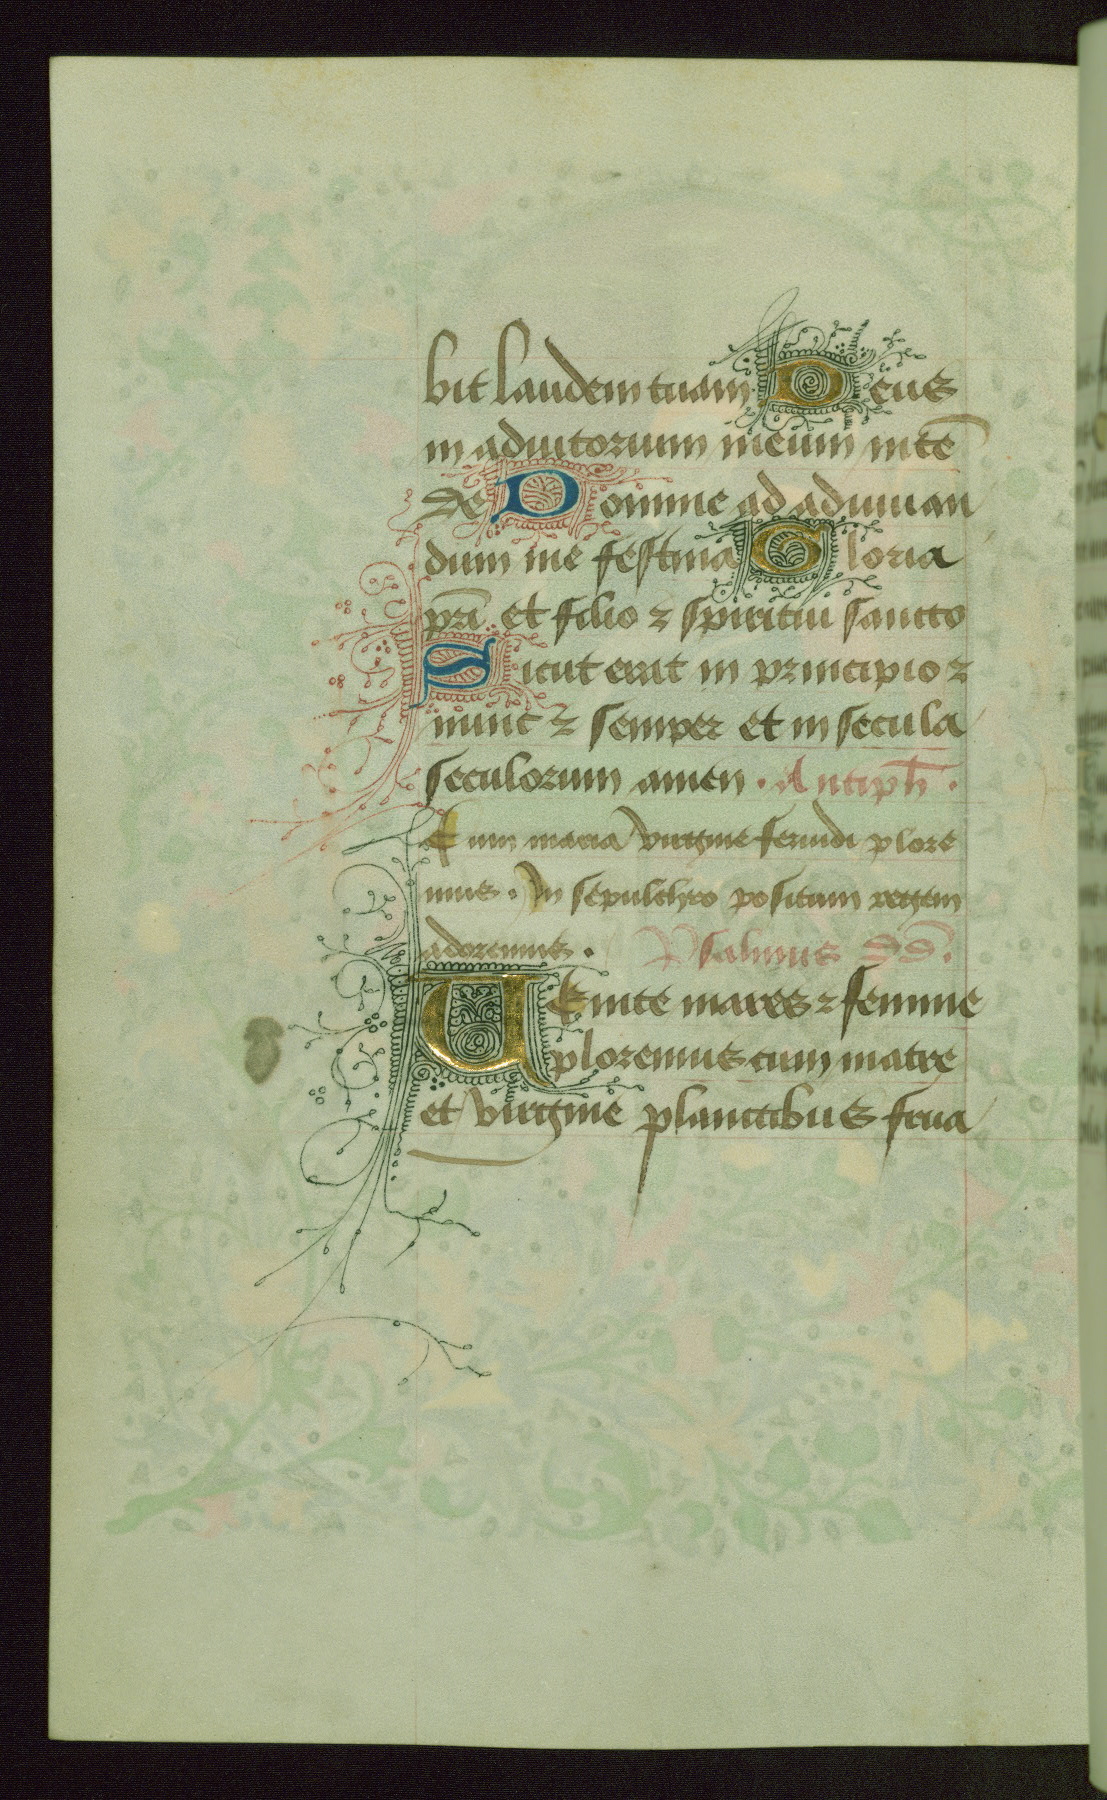 bit laudem tuam Deus
in adiutorium meum intē
de Domine ad adiuuan
dum me festina Gloria
pr̄i et filio ⁊ spiritui sancto
Sicut erat in principio ⁊
nunc ⁊ semper et in secula
seculorum amen · Antiph̄ ·
Cum maria virgine feruidi plore
mus · In sepulchro positum regem
adoremus · Psalmus
Uenite mares ⁊ femine
ploremus cum matre
et virgine planctibus